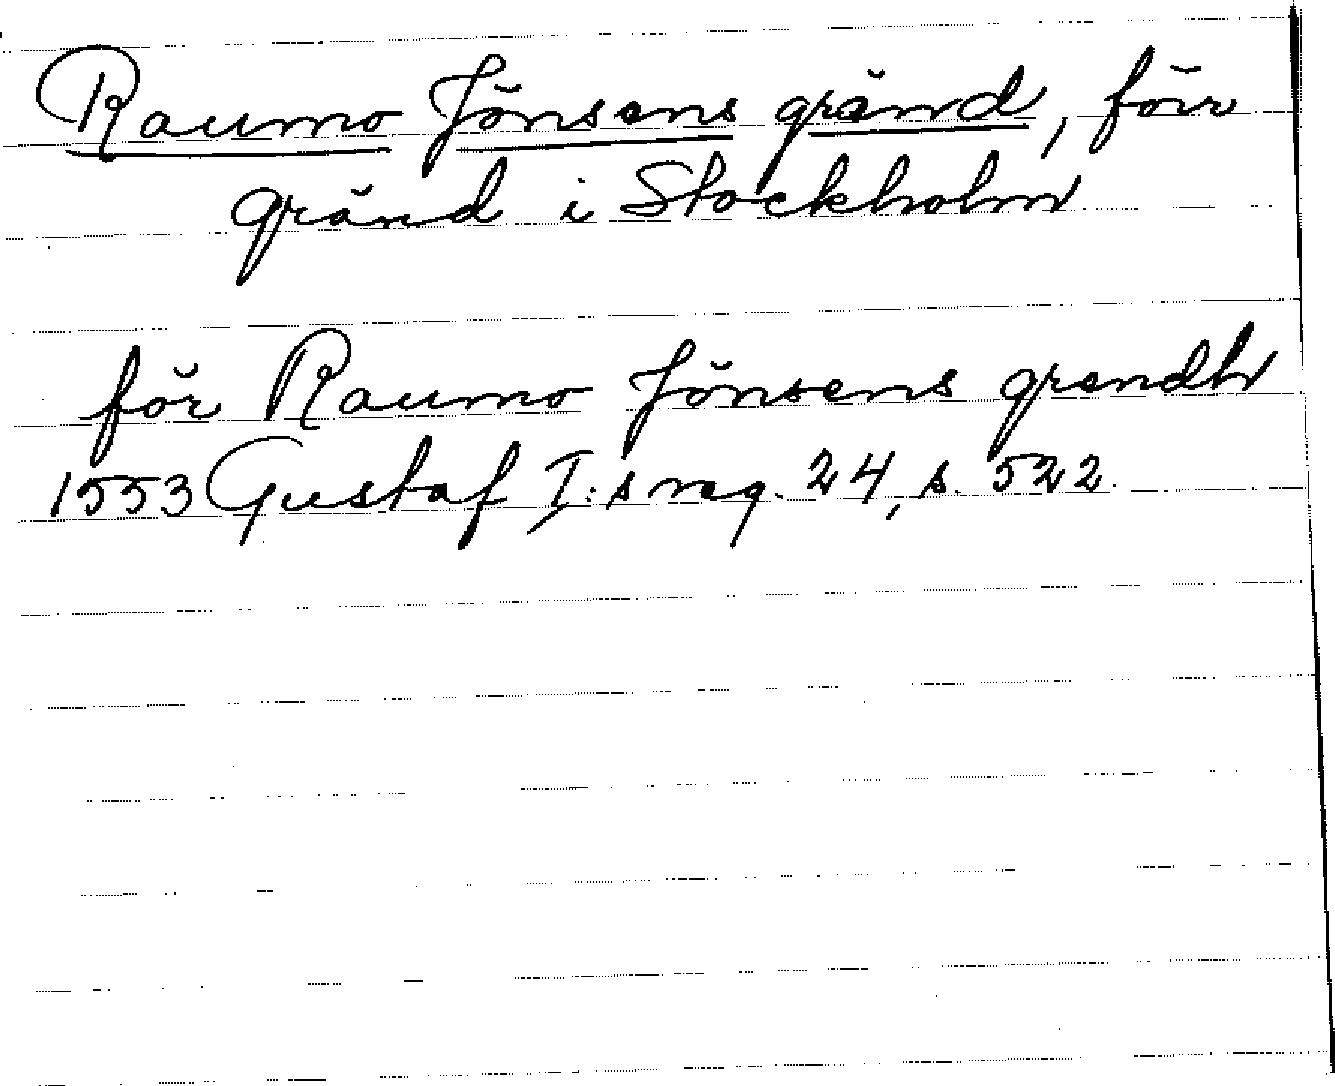 Raumo Jönsens gränd, förr
gränd i Stockholm
för Raumo Jönsens grendh
1553 Gustaf I:s reg. 24, s. 522.